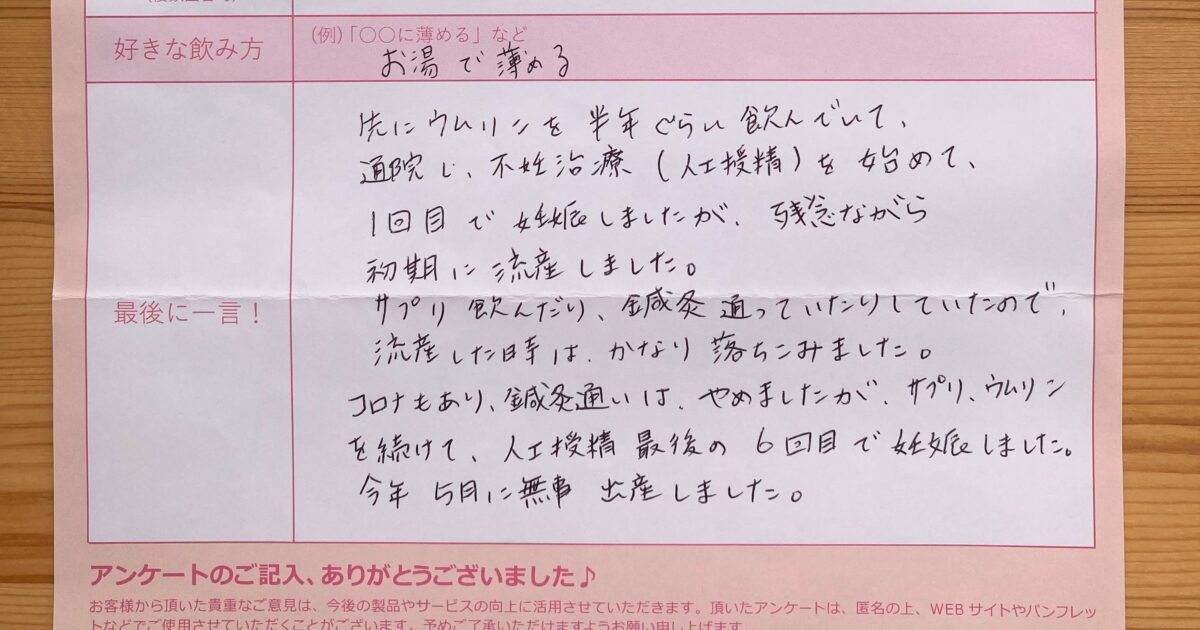 好きな飲み方
(例)「〇〇に薄める」など
お湯で薄める
先にウムリンを半年ぐらい飲んでいて、
通院し、不妊治療(人工授精)を始めて、
1回目で妊娠しましたが、残念ながら
初期に流産しました。
サプリ飲んだり、鍼灸通っていたりしていたので、
流産した時は、かなり落ちこみました。
最後に一言！
コロナもあり、鍼灸通いは、やめましたが、サプリ、ウムリン
を続けて、人工授精最後の6回目で妊娠しました。
今年5月に無事出産しました。
アンケートのご記入、ありがとうございました♪
お客様から頂いた貴重なご意見は、今後の製品やサービスの向上に活用させていただきます。頂いたアンケートは、匿名の上、WEBサイトやパンフレッ
トなどでご使用させていただくことがございます。予めご了承いただけますようお願い申し上げます。